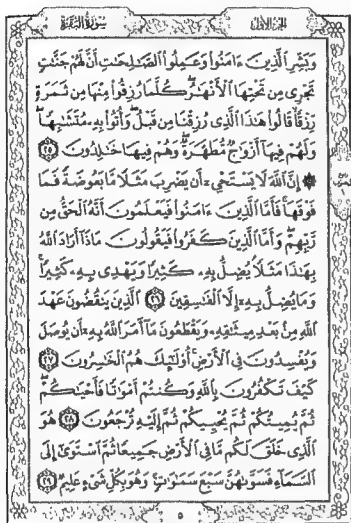 سُورَةُ البَقَرَةِ الجُزْءُ الأَوَّلُ
وَبَشِّرِ الَّذِينَ ءَامَنُوا وَعَمِلُوا الصَّالِحَاتِ أَنَّ لَهُمْ جَنَّاتٍ
تَجْرِي مِن تَحْتِهَا الْأَنْهَارُ كُلَّمَا رُزِقُوا مِنْهَا مِن ثَمَرَةٍ
رِّزْقًا قَالُوا هَٰذَا الَّذِي رُزِقْنَا مِن قَبْلُ وَأُتُوا بِهِ مُتَشَابِهًا
وَلَهُمْ فِيهَا أَزْوَاجٌ مُّطَهَّرَةٌ وَهُمْ فِيهَا خَالِدُونَ ٢٥
۞ إِنَّ اللَّهَ لَا يَسْتَحْيِ أَن يَضْرِبَ مَثَلًا مَّا بَعُوضَةً فَمَا
فَوْقَهَا فَأَمَّا الَّذِينَ ءَامَنُوا فَيَعْلَمُونَ أَنَّهُ الْحَقُّ مِن
رَّبِّهِمْ وَأَمَّا الَّذِينَ كَفَرُوا فَيَقُولُونَ مَاذَا أَرَادَ اللَّهُ
بِهَٰذَا مَثَلًا يُضِلُّ بِهِ كَثِيرًا وَيَهْدِي بِهِ كَثِيرًا
وَمَا يُضِلُّ بِهِ إِلَّا الْفَاسِقِينَ ٢٦ الَّذِينَ يَنقُضُونَ عَهْدَ
اللَّهِ مِن بَعْدِ مِيثَاقِهِ وَيَقْطَعُونَ مَا أَمَرَ اللَّهُ بِهِ أَن يُوصَلَ
وَيُفْسِدُونَ فِي الْأَرْضِ أُولَٰئِكَ هُمُ الْخَاسِرُونَ ٢٧
كَيْفَ تَكْفُرُونَ بِاللَّهِ وَكُنتُمْ أَمْوَاتًا فَأَحْيَاكُمْ
ثُمَّ يُمِيتُكُمْ ثُمَّ يُحْيِيكُمْ ثُمَّ إِلَيْهِ تُرْجَعُونَ ٢٨ هُوَ
الَّذِي خَلَقَ لَكُم مَّا فِي الْأَرْضِ جَمِيعًا ثُمَّ اسْتَوَىٰ إِلَى
السَّمَاءِ فَسَوَّاهُنَّ سَبْعَ سَمَاوَاتٍ وَهُوَ بِكُلِّ شَيْءٍ عَلِيمٌ ٢٩
٥